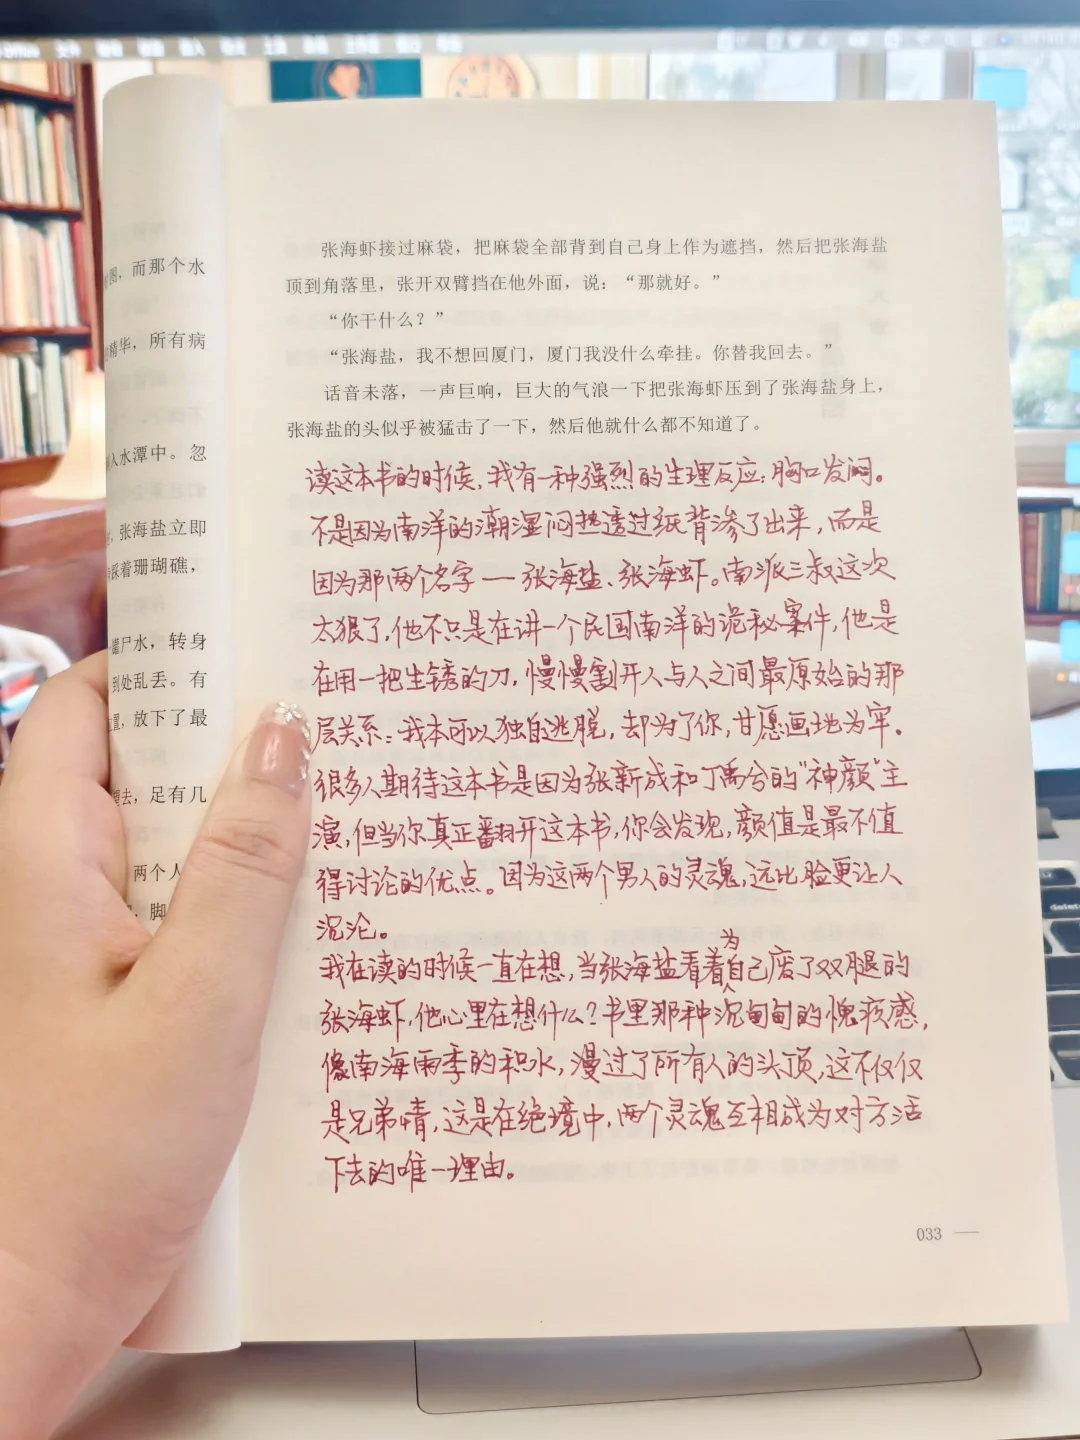 时图，而那个水
精华，所有病
入水潭中。忽
张海盐立即
踩着珊瑚礁，
罐尸水，转身
到处乱丢。有
置，放下了最
足有几
两个人
脚
张海虾接过麻袋，把麻袋全部背到自己身上作为遮挡，然后把张海盐
顶到角落里，张开双臂挡在他外面，说：“那就好。”
“你干什么？”
“张海盐，我不想回厦门，厦门我没什么牵挂。你替我回去。”
话音未落，一声巨响，巨大的气浪一下把张海虾压到了张海盐身上，
张海盐的头似乎被猛击了一下，然后他就什么都不知道了。
读这本书的时候，我有一种强烈的生理反应：胸口发闷。
不是因为南洋的潮湿闷热透过纸背渗了出来，而是
因为那两个名字——张海盐、张海虾。南派三叔这次
太狠了，他不只是在讲一个民国南洋的诡秘案件，他是
在用一把生锈的刀，慢慢割开人与人之间最原始的那
层关系：我本可以独自逃脱，却为了你，甘愿画地为牢。
很多人期待这本书是因为张新成和丁禹兮的“神颜”主
演，但当你真正翻开这本书，你会发现，颜值是最不值
得讨论的优点。因为这两个男人的灵魂，远比脸更让人
沉沦。
我在读的时候一直在想，当张海盐看着为自己废了双腿的
张海虾，他心里在想什么？书里那种沉甸甸的愧疚感，
像南海雨季的积水，漫过了所有人的头顶，这不仅仅
是兄弟情，这是在绝境中，两个灵魂互相成为对方活
下去的唯一理由。
033